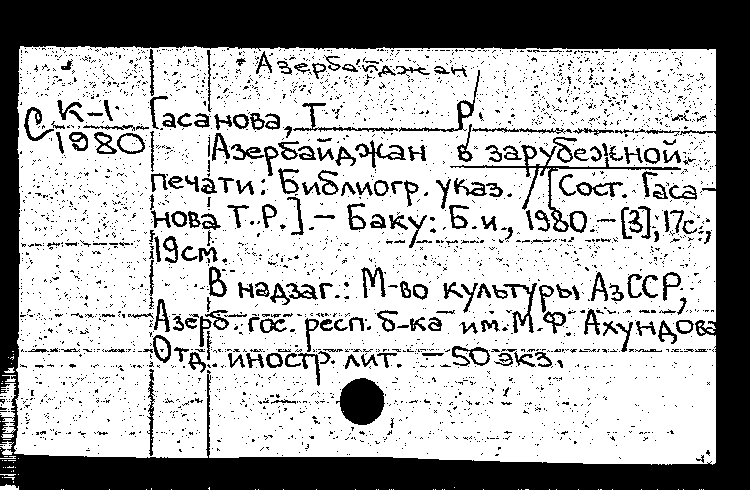 Азербайджан
С К-1
1980
Гасанова, Т. Р.
Азербайджан в зарубежной
печати: Библиогр. указ. / [Сост. Гаса-
нова Т.Р.]. – Баку: Б.и., 1980. – [3], 17с.;
19см.
В надзаг.: М-во культуры АзССР,
Азерб. гос. респ. б-ка им. М.Ф. Ахундова
Отд. иностр. лит. – 50 экз.